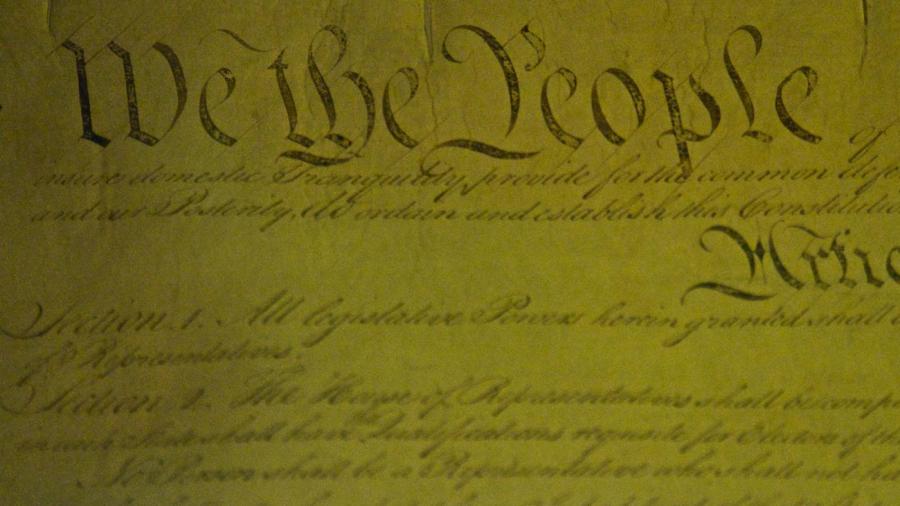 We the People of
insure domestic Tranquility, provide for the common defe
and our Posterity, do ordain and establish this Constitutio
Artic
Section 1. All legislative Powers herein granted shall
of Representatives.
Section 2. The House of Representatives shall be comp
in each State shall have the Qualifications requisite for Electors of the
No Person shall be a Representative who shall not ha